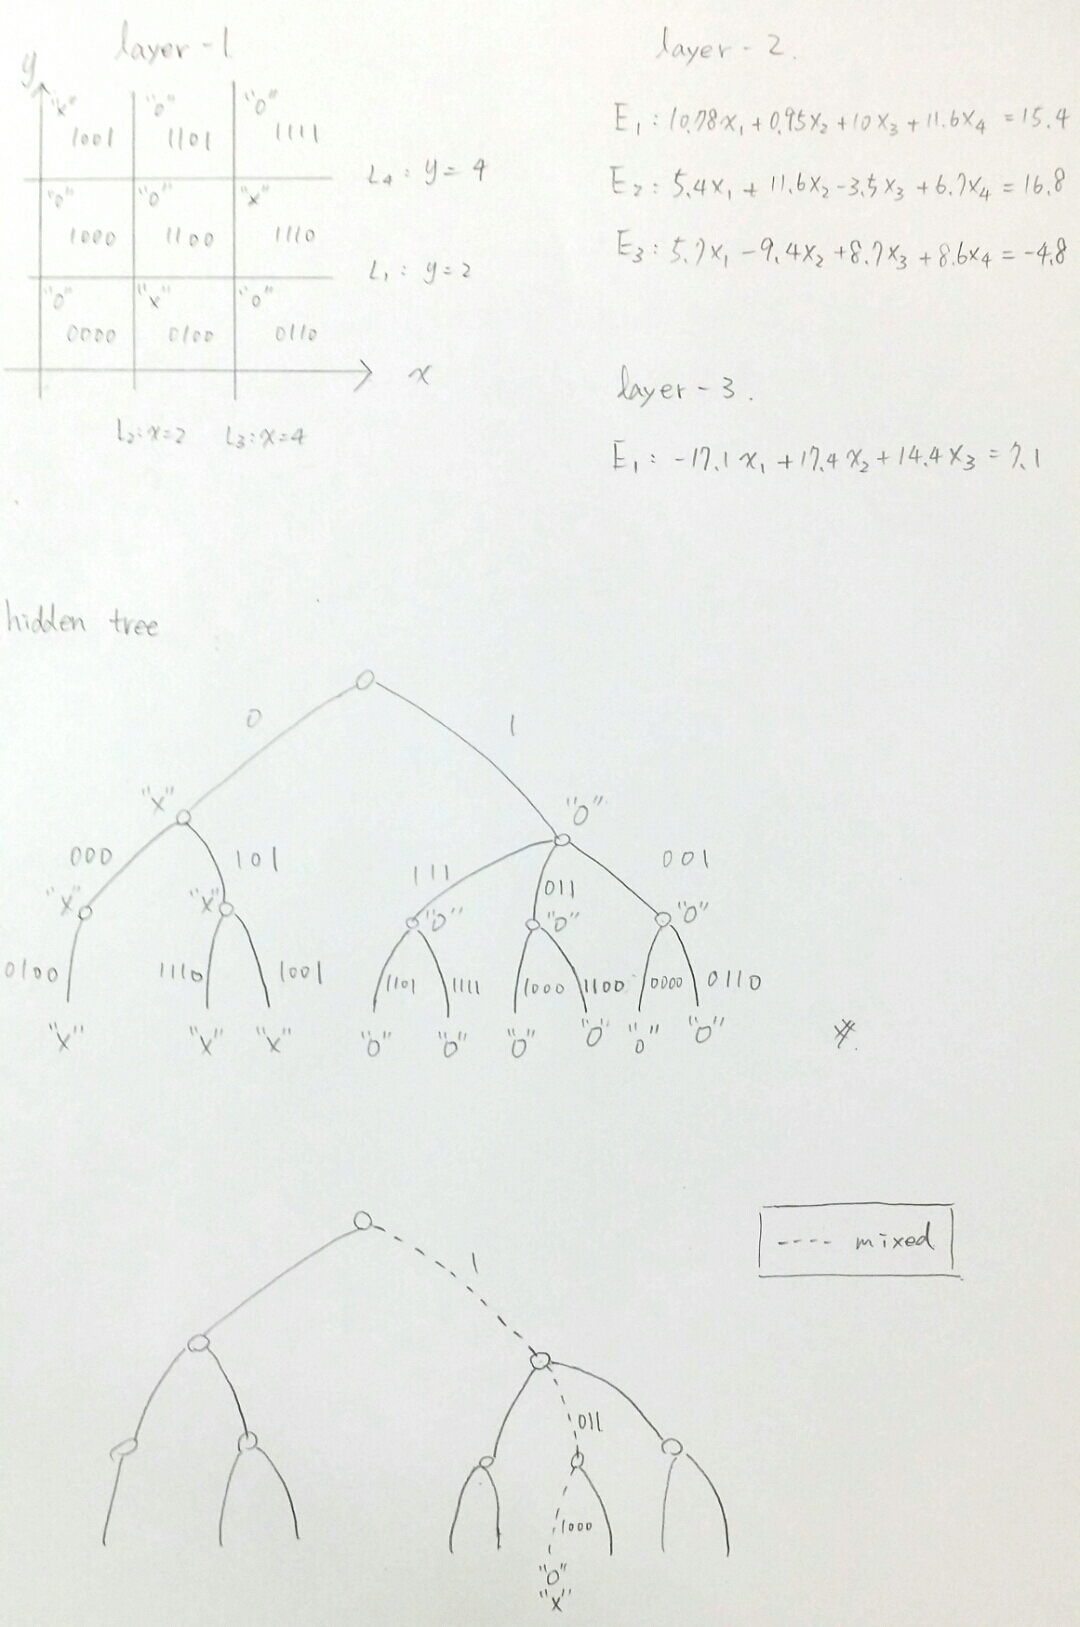 layer-1
y
"x" "0" "0"
1001 1101 1111
L4: y=4
"0" "0" "x"
1000 1100 1110
L1: y=2
"0" "x" "0"
0000 0100 0110
x
L2:x=2 L3:x=4
layer-2.
E1: 10.78x1+0.95x2+10x3+11.6x4=15.4
E2: 5.4x1+11.6x2-3.5x3+6.7x4=16.8
E3: 5.7x1-9.4x2+8.7x3+8.6x4=-4.8
layer-3.
E1: -17.1x1+17.4x2+14.4x3=7.1
hidden tree
0 1
"x" "0"
000 101 111 011 001
"x" "x" "0" "0" "0"
0100 1110 1001 1101 1111 1000 1100 0000 0110
"x" "x" "x" "0" "0" "0" "0" "0" "0"
#.
---- mixed
1
011
1000
"0"
"x"